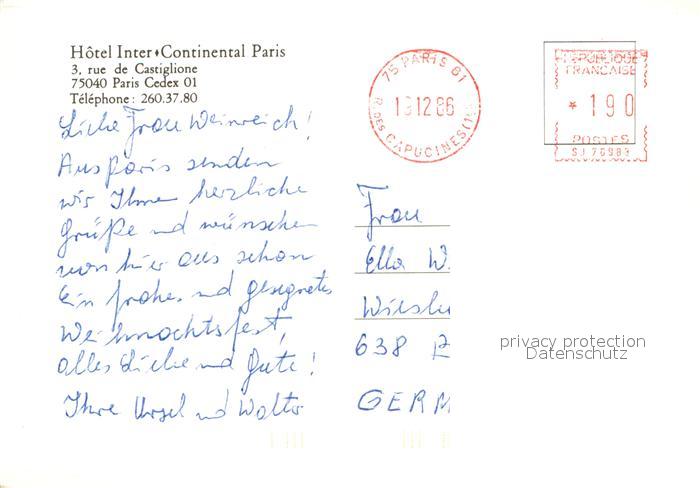 Hôtel Inter•Continental Paris
3, rue de Castiglione
75040 Paris Cedex 01
Téléphone: 260.37.80
Liebe Frau Weinreich!
Aus Paris senden
wir Ihnen herzliche
Grüße und wünschen
von hier aus schon
ein frohes und gesegnetes
Weihnachtsfest,
alles Liebe und Gute!
Ihre Ursel und Walter
75 PARIS 01
12 86
R. DES CAPUCINES
REPUBLIQUE
FRANCAISE
* 190
POSTES
Frau
Ella W.
638
GERM
privacy protection
Datenschutz